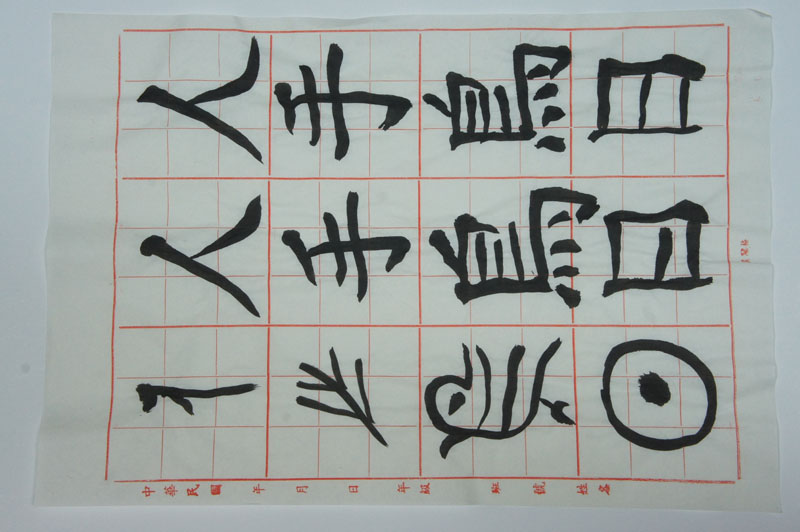 人手鳥日
人手鳥日
人手鳥日
中華民國 年 月 日 年級 班 號 姓名